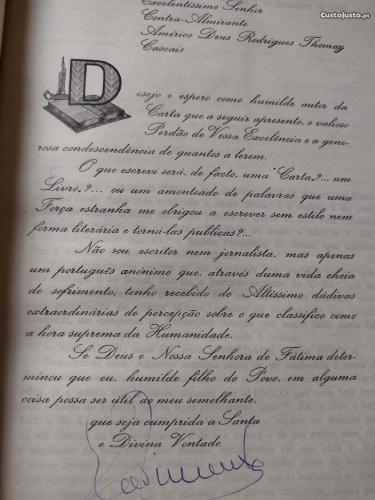 CustoJusto.pt
Excelentíssimo Senhor
Contra-Almirante
Américo Deus Rodrigues Thomaz
Cascais
Desejo e espero como humilde autor da
Carta que a seguir apresento, o valioso
Perdão de Vossa Excelência e a gene-
rosa condescendência de quantos a lerem.
O que escrevi será, de facto, uma "Carta,?... um
Livro,?... ou um amontoado de palavras que uma
Força estranha me obrigou a escrever sem estilo nem
forma literária e torná-las publicas?...
Não sou escritor nem jornalista, mas apenas
um português anónimo que, através duma vida cheia
de sofrimento, tenho recebido do Altíssimo dádivas
extraordinárias de percepção sobre o que classifico como
a hora suprema da Humanidade.
Se Deus e Nossa Senhora de Fátima deter-
minou que eu, humilde filho do Povo, em alguma
coisa possa ser útil ao meu semelhante,
que seja cumprida a Santa
e Divina Vontade